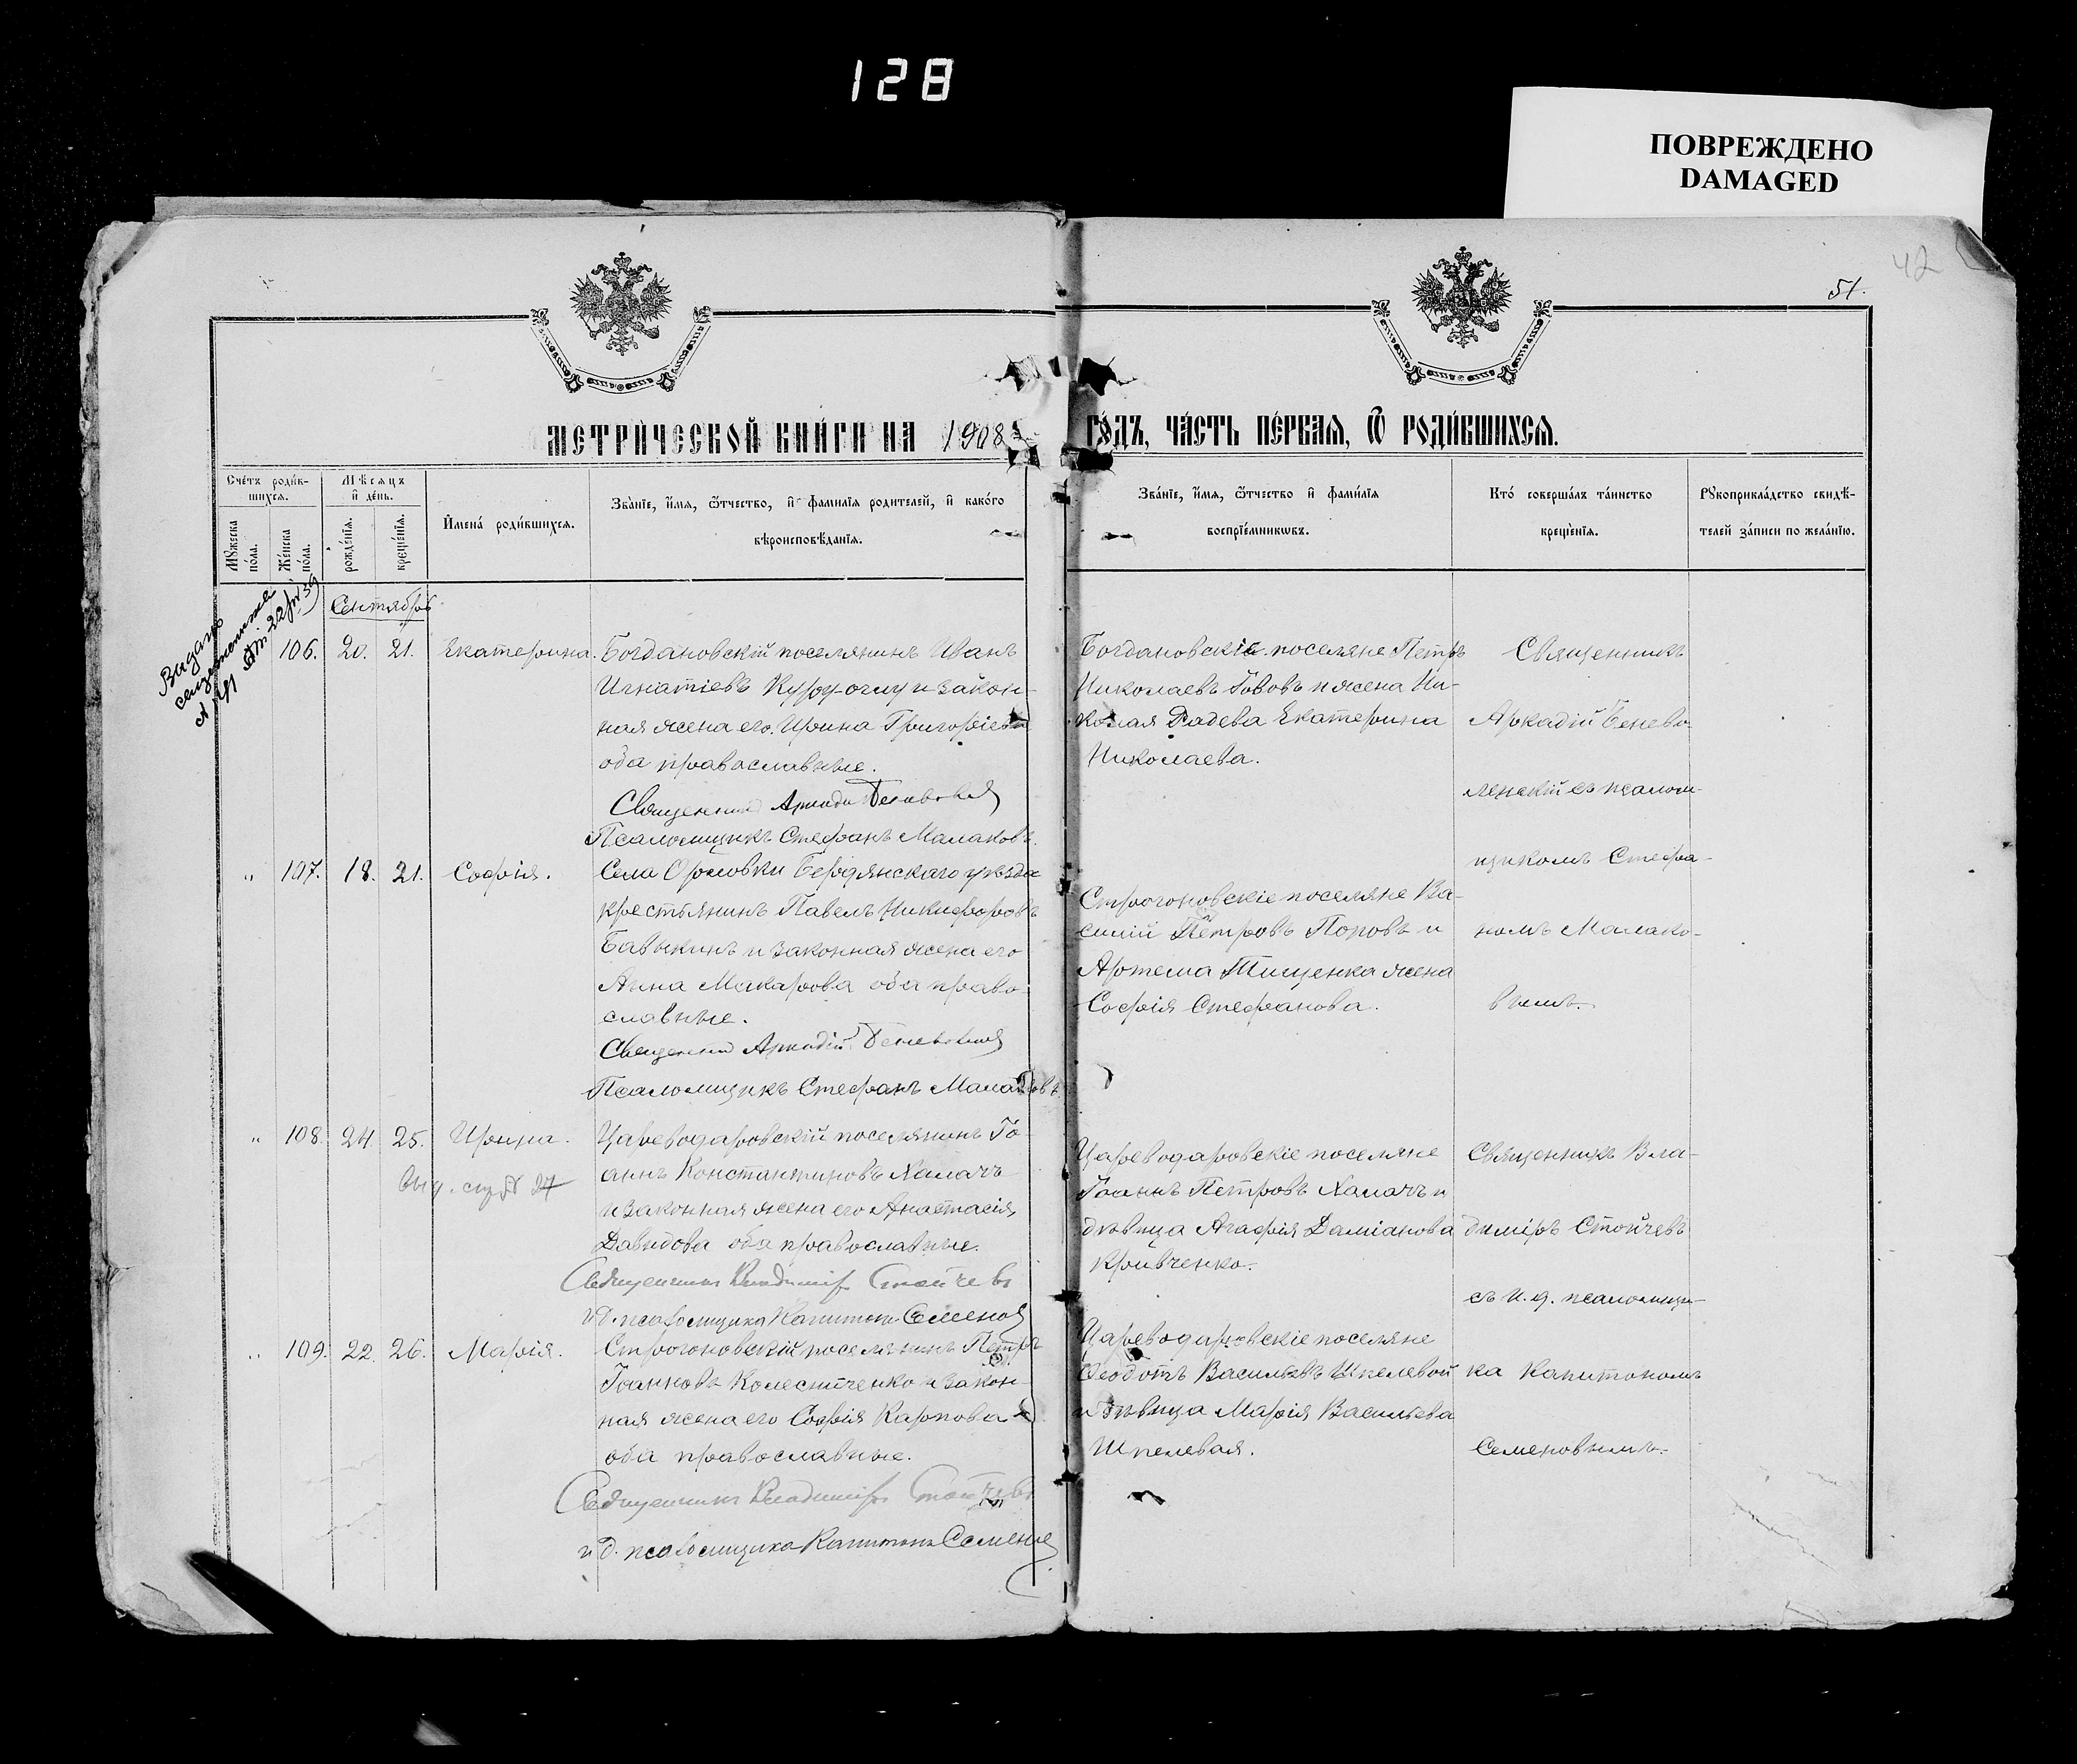 128
ПОВРЕЖДЕНО
DAMAGED
42
51.
МЕТРИЧЕСКОЙ КНИГИ НА 1908 ГОДЪ, ЧАСТЬ ПЕРВАЯ, Ѿ РОДИВШИХСЯ.
Счетъ родив-
шихся.
Мѣсяцъ
и день.
Мужеска
пола.
Женска
пола.
рожденія.
крещенія.
Имена родившихся.
Званіе, имя, ѿтчество, и фамилія родителей, и какого
вѣроисповѣданія.
Званіе, имя, ѿтчество и фамилія
воспріемниковъ.
Кто совершалъ таинство
крещенія.
Рукоприкладство свидѣ-
телей записи по желанію.
Выдано
Сентябрь
106. 20. 21. Екатерина.
Богдановскій поселянинъ Иванъ
Игнатіевъ Курдоглу и закон-
ная жена его Ирина Григоріева
оба православные.
Священникъ Аркадій
Псаломщикъ Стефанъ Малаковъ.
Богдановскіе поселяне Петръ
Николаевъ Гововъ и жена Ни-
колая Радева Екатерина
Николаева.
Священникъ
Аркадій Бенево-
ленскій съ псалом-
щикомъ Стефа-
номъ Малако-
вымъ.
" 107. 18. 21. Софія.
Села Орловки Бердянскаго уѣзда
крестьянинъ Павелъ Никифоровъ
Бавыкинъ и законная жена его
Анна Макарова оба право-
славные.
Священникъ Аркадій
Псаломщикъ Стефанъ Малаковъ.
Строгоновскіе поселяне Ва-
силій Петровъ Поповъ и
Артема Тищенка жена
Софія Стефанова.
" 108. 24. 25. Ирина.
Цареводаровскій поселянинъ Іо-
аннъ Константиновъ Халачъ
и законная жена его Анастасія
Давидова оба православные.
Священникъ Владиміръ Стойчевъ
и д. псаломщика Капитонъ Семеновъ
Цареводаровскіе поселяне
Іоаннъ Петровъ Халачъ и
дѣвица Агафія Даміанова
Кривченко.
Священникъ Вла-
диміръ Стойчевъ
съ и. д. псаломщи-
ка Капитономъ
Семеновымъ.
" 109. 22. 26. Марія.
Строгоновскій поселянинъ Петръ
Іоанновъ Колесниченко и закон-
ная жена его Софія Карпова
оба православные.
Священникъ Владиміръ Стойчевъ
и д. псаломщика Капитонъ Семеновъ
Цареводаровскіе поселяне
Ѳеодотъ Васильевъ Шпелевой
и дѣвица Марія Васильева
Шпелевая.